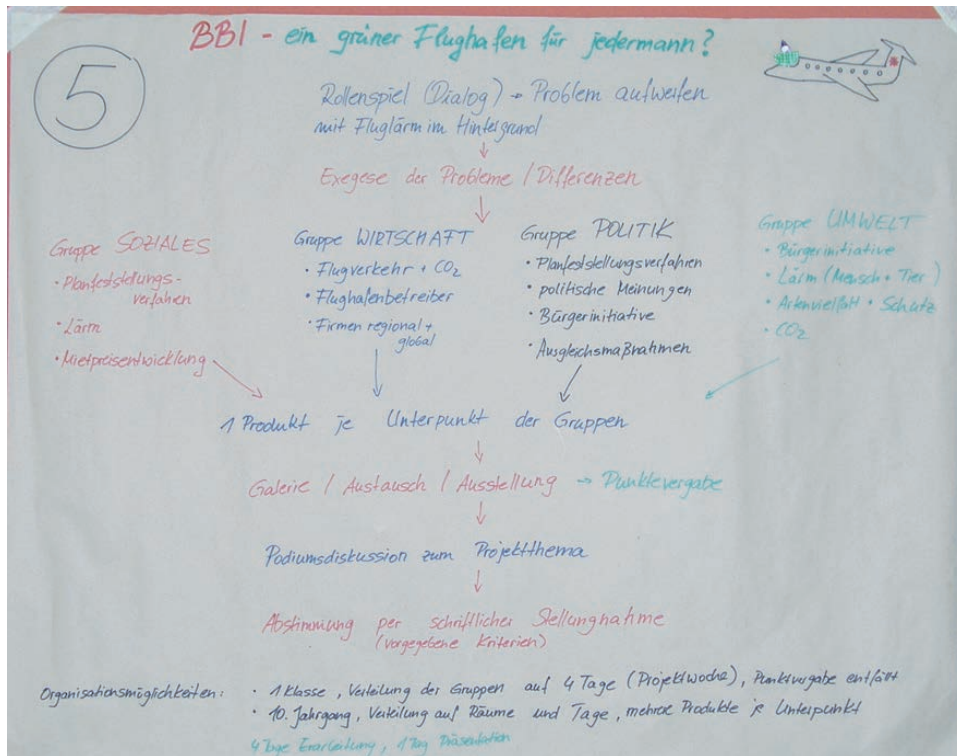 BBI - ein grüner Flughafen für jedermann?
5
Rollenspiel (Dialog) → Problem aufwerfen
mit Fluglärm im Hintergrund
Exegese der Probleme / Differenzen
Gruppe SOZIALES
• Planfeststellungs-
verfahren
• Lärm
• Mietpreisentwicklung
Gruppe WIRTSCHAFT
• Flugverkehr + CO₂
• Flughafenbetreiber
• Firmen regional +
global
Gruppe POLITIK
• Planfeststellungsverfahren
• politische Meinungen
• Bürgerinitiative
• Ausgleichsmaßnahmen
Gruppe UMWELT
• Bürgerinitiative
• Lärm (Mensch + Tier)
• Artenvielfalt + Schutz
• CO₂
1 Produkt je Unterpunkt der Gruppen
Galerie / Austausch / Ausstellung → Punktevergabe
Podiumsdiskussion zum Projektthema
Abstimmung per schriftlicher Stellungnahme
(vorgegebene Kriterien)
Organisationsmöglichkeiten: • 1 Klasse, Verteilung der Gruppen auf 4 Tage (Projektwoche), Punktvergabe entfällt
• 10. Jahrgang, Verteilung auf Räume und Tage, mehrere Produkte je Unterpunkt
4 Tage Erarbeitung, 1 Tag Präsentation